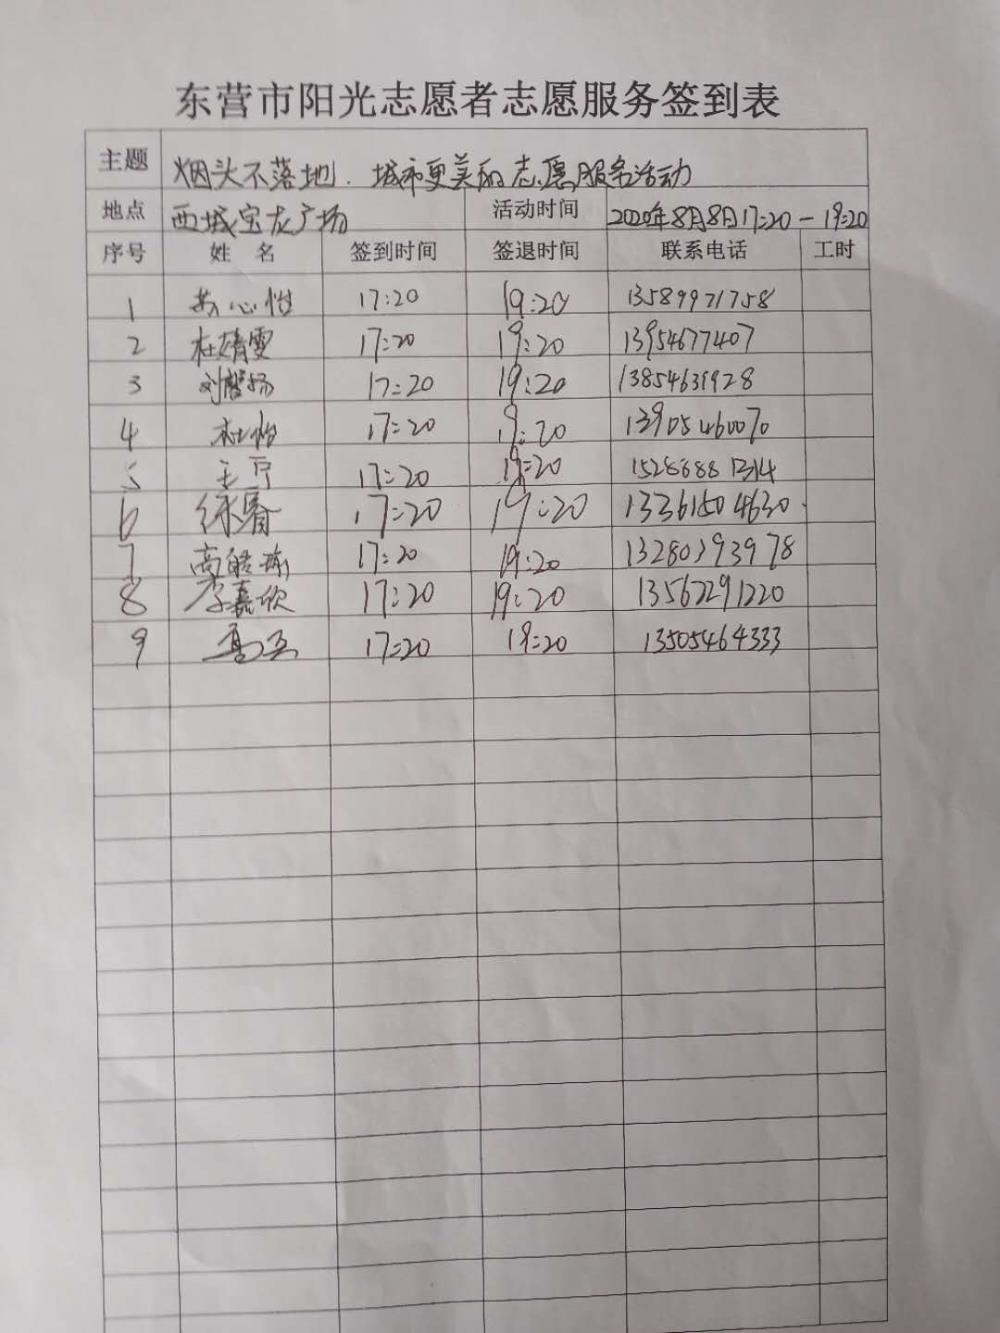 东营市阳光志愿者志愿服务签到表
主题 烟头不落地.城市更美丽志愿服务活动
地点 西城宝龙广场 活动时间 2020年8月8日17:20-19:20
序号 姓名 签到时间 签退时间 联系电话 工时
1 苏心怡 17:20 19:20 13589971758
2 杜婧雯 17:20 19:20 13954677407
3 17:20 19:20 13854631928
4 杜怡 17:20 19:20 13905460070
5 王亨 17:20 19:20 15286881314
6 徐睿 17:20 19:20 13361504630
7 高皓瑜 17:20 19:20 13280393978
8 李嘉欣 17:20 19:20 13562291220
9 17:20 19:20 13505464333